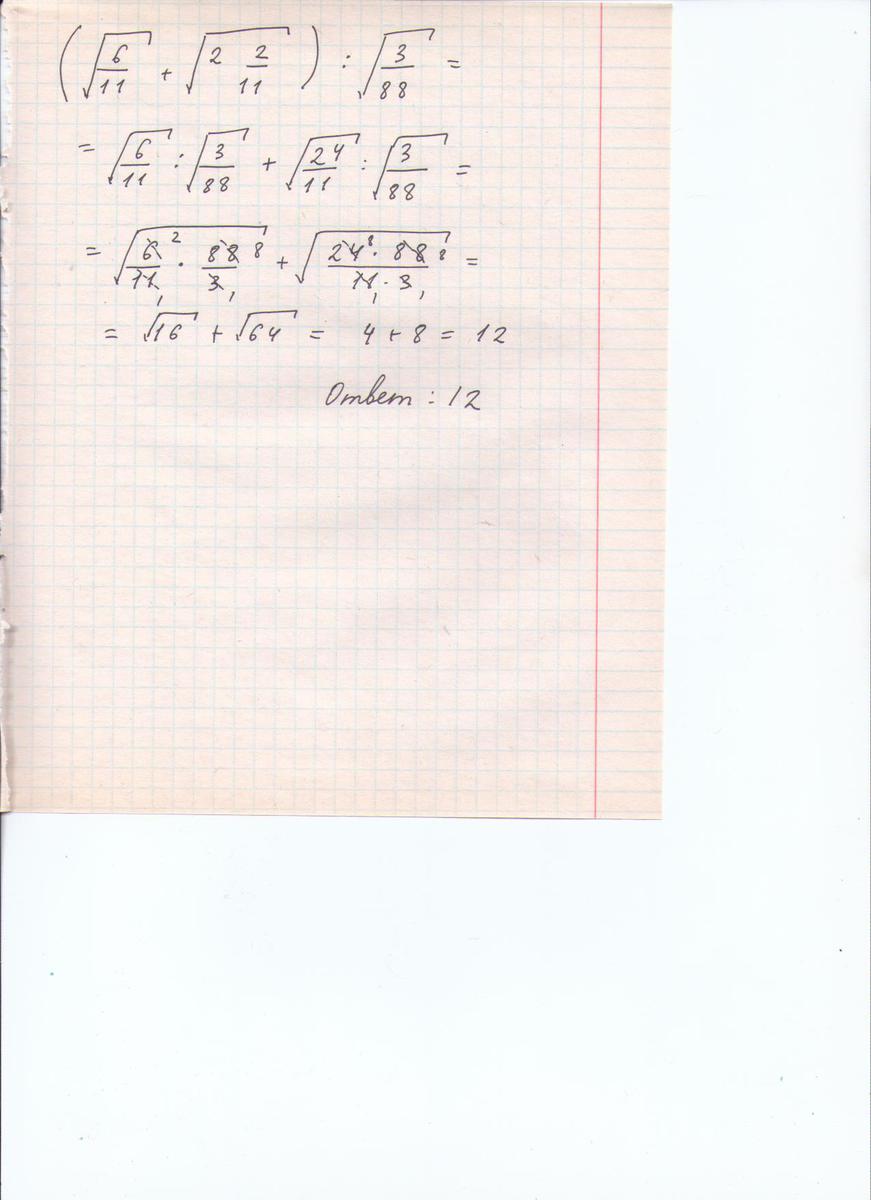 (√(6/11) + √(2 2/11)) : √(3/88) =
= √(6/11) : √(3/88) + √(24/11) : √(3/88) =
= √(6² / 11₁ · 88 8 / 3₁) + √(24⁸ · 88 8 / 11₁ · 3₁) =
= √16 + √64 = 4 + 8 = 12
Ответ : 12